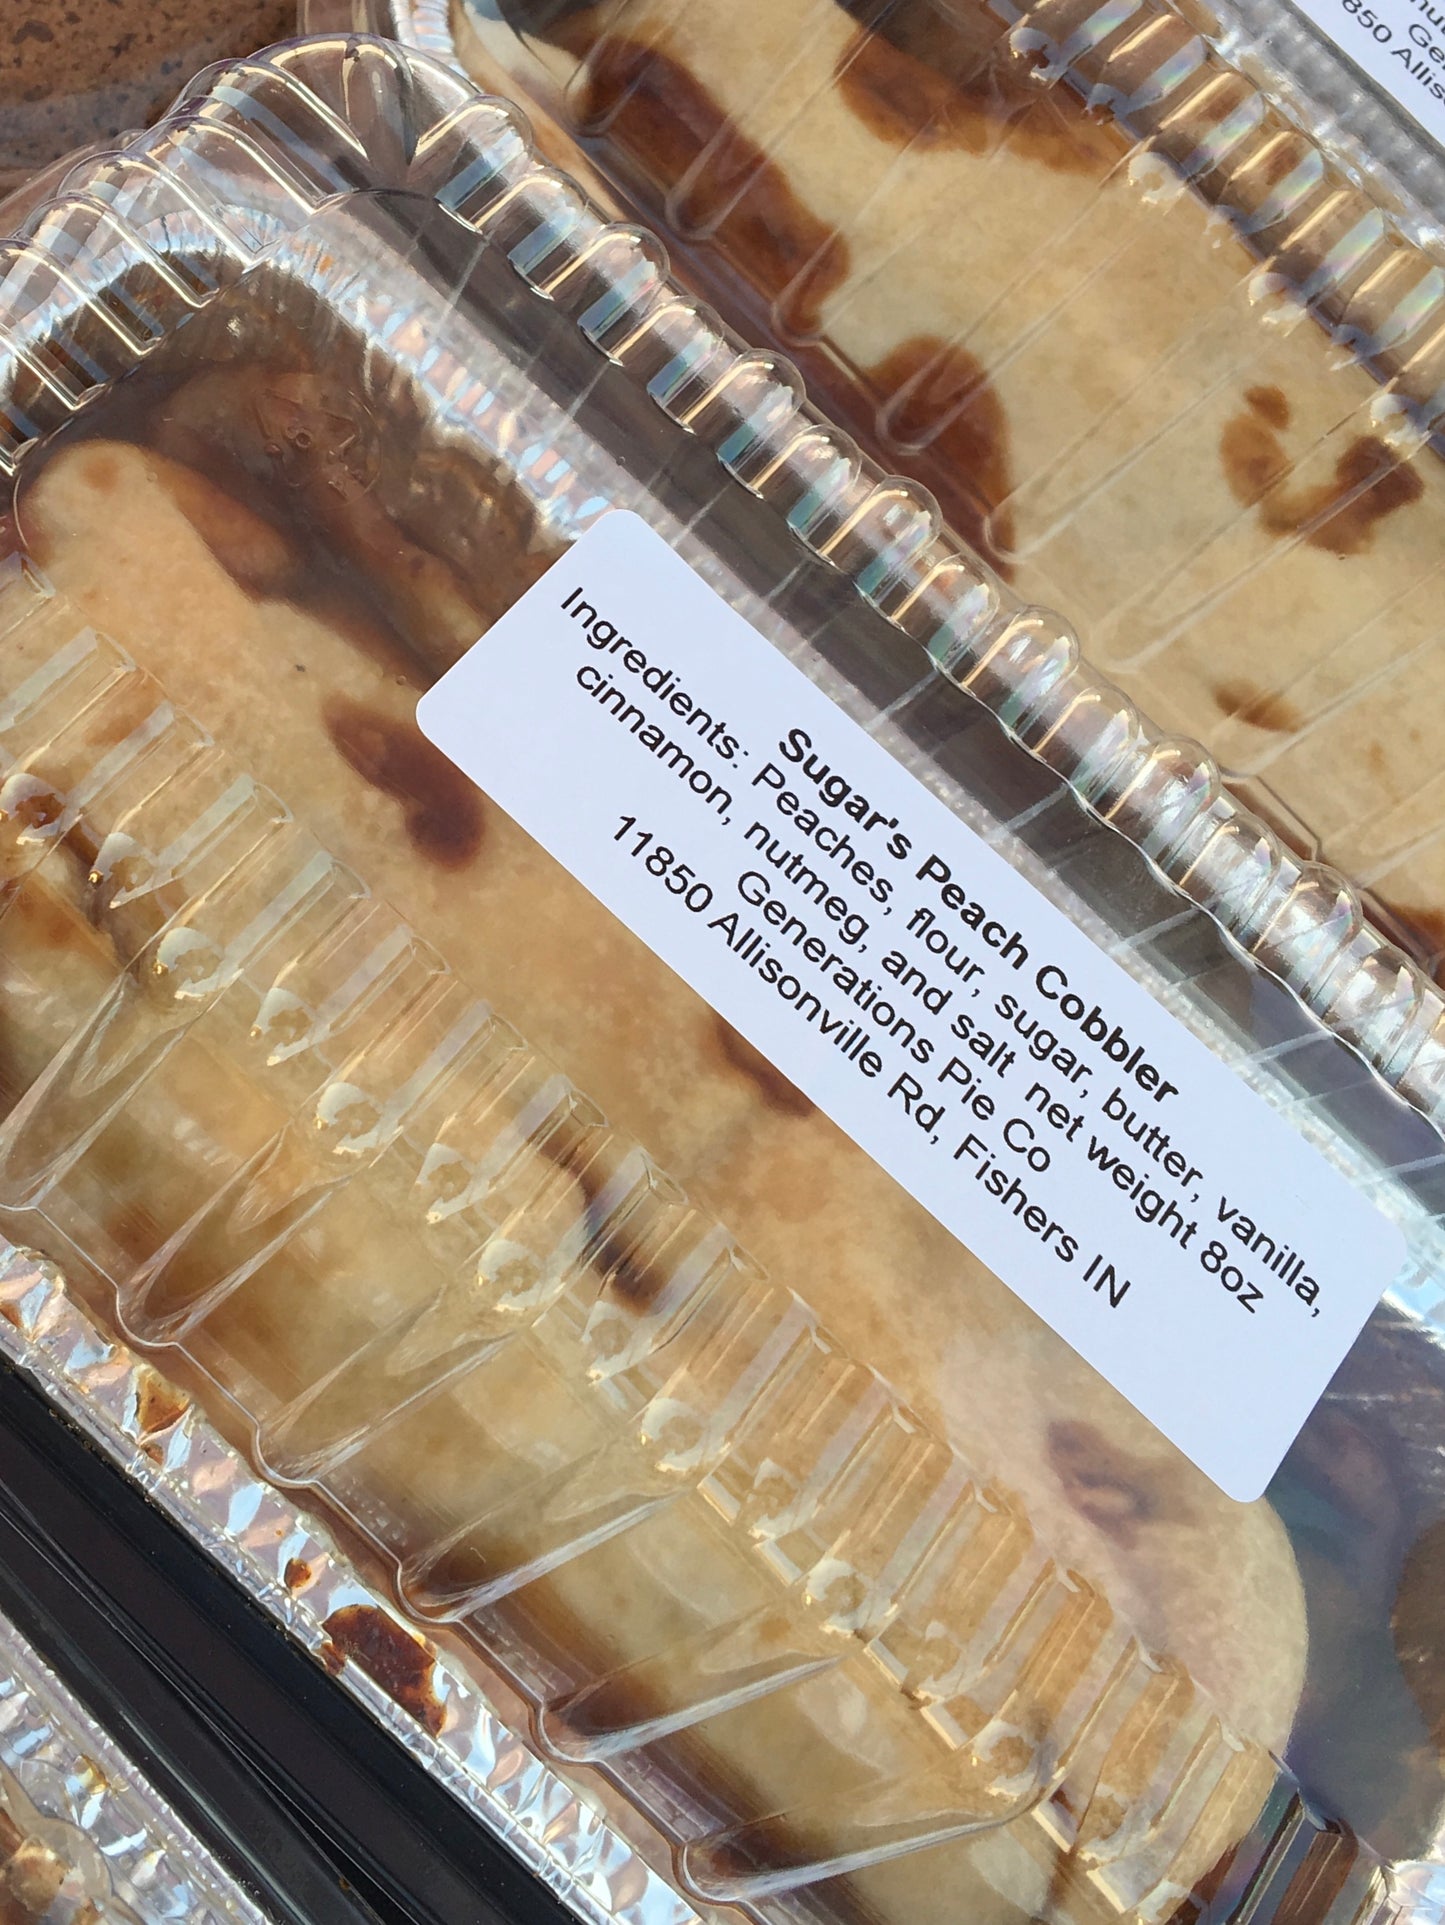 Sugar's Peach Cobbler
Ingredients: Peaches, flour, sugar, butter, vanilla,
cinnamon, nutmeg, and salt  net weight 8oz
Generations Pie Co
11850 Allisonville Rd, Fishers IN